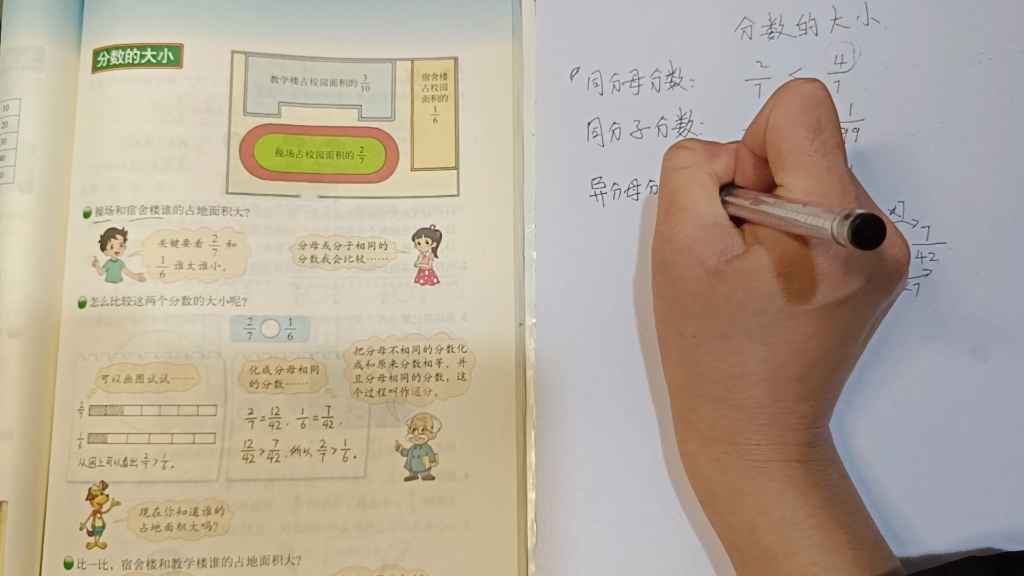 分数的大小
教学楼占校园面积的 3/10
宿舍楼
占校园
面积的
1/6
操场占校园面积的 2/7
操场和宿舍楼谁的占地面积大?
关键要看 2/7 和
1/6 谁大谁小。
分母或分子相同的
分数我会比较……
怎么比较这两个分数的大小呢?
2/7 ○ 1/6
可以画图试试……
2/7
1/6
从图上可以看出 2/7 > 1/6。
化成分母相同
的分数……
2/7 = 12/42, 1/6 = 7/42,
12/42 > 7/42, 所以 2/7 > 1/6。
把分母不相同的分数化
成和原来分数相等,并
且分母相同的分数,这
个过程叫作通分。
现在你知道谁的
占地面积大吗?
比一比,宿舍楼和教学楼谁的占地面积大?
10
20
30
分数的大小
同分母分数: 2/7 < 4/7
同分子分数:
异分母分
×7
7/42